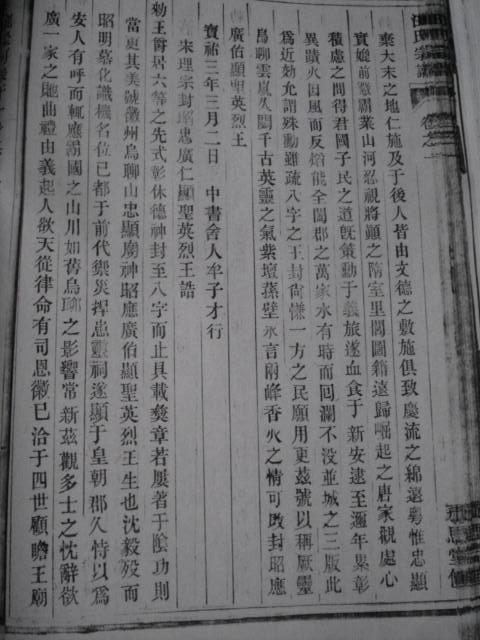 汪氏宗譜
卷之一
棄大末之地仁施及于後人皆由文德之敷施俱致慶流之綿遠粵惟忠顯
實媲前徽霸業山河忍視將顛之隋室里閭圖籍遠歸崛起之唐家觀處心
積慮之間得君國子民之道旣策勳于義旅遂血食于新安逮至邇年累彰
異蹟火因風而反熖能全闔郡之萬家水有時而回瀾不沒並城之三版此
爲近効允謂殊勳雖疏八字之王封尙慊一方之民願用更玆號以稱厥靈
烏聊雲嵐久閟千古英靈之氣紫壇蓀壁永言兩峰香火之情可改封昭應
廣佑顯聖英烈王
寶祐三年三月二日 中書舍人牟子才行
宋理宗封昭忠廣仁顯聖英烈王誥
勑王爵居六等之先式彰休德神封至八字而止具載彝章若屢著于陰功則
當更其美號徽州烏聊山忠顯廟神昭應廣佑顯聖英烈王生也沈毅歿而
昭明慕化識機名位已都于前代禦災捍患靈祠遂顯于皇朝郡久恃以爲
安人有呼而輒應霸國之山川如舊烏聊之影響常新玆觀多士之忱辭欲
廣一家之貤典禮由義起人欲天從律命有司恩徽已洽于四世顧瞻王廟